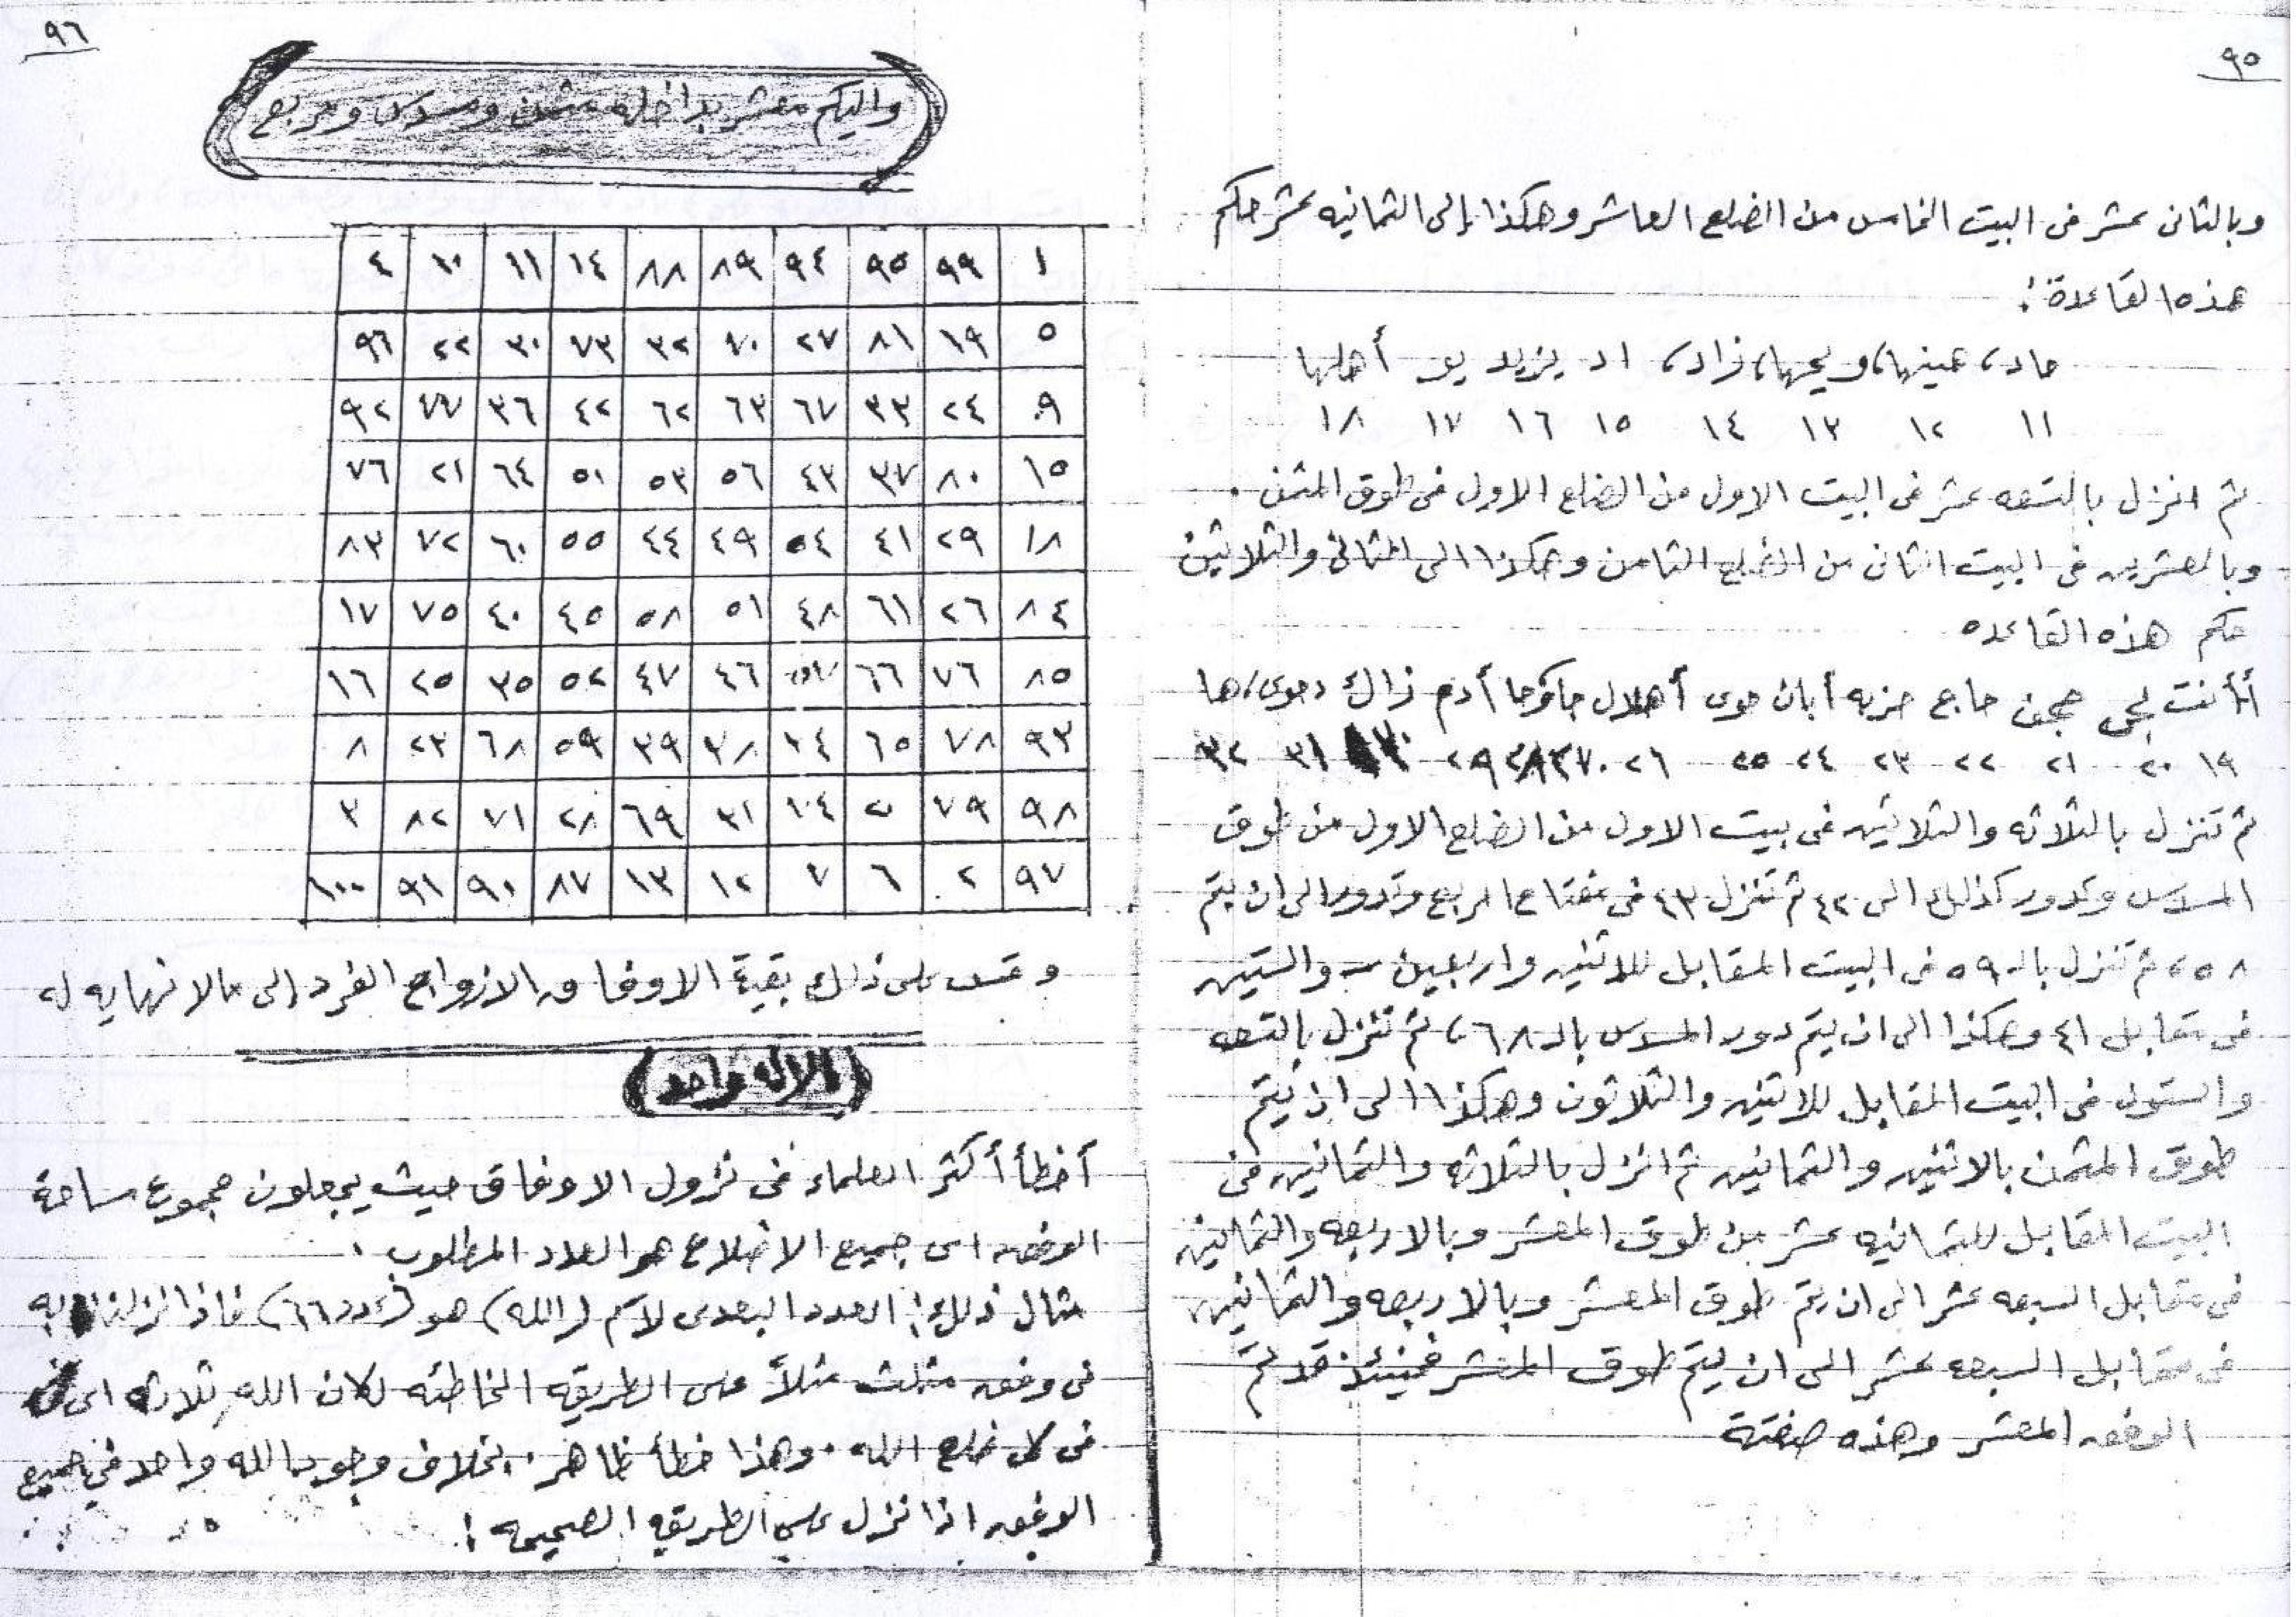 ٩٥
وبالثاني عشر في البيت الخامس من الضلع العاشر وهكذا إلى الثمانيه عشر حكم
هذه القاعدة:
حاد، هينها، ويحها، زاد، اد يزيد يو أهلها
١١ ١٢ ١٣ ١٤ ١٥ ١٦ ١٧ ١٨
ثم انزل بالتسعه عشر في البيت الاول من الضلع الاول في طوق المثمن .
وبالعشرين في البيت الثاني من الضلع الثامن وهكذا الى الثاني والثلاثين
حكم هذه القاعده
حاج حزبه أبان حوى أهلال أدم زاك
١٩ ٢٠ ٢١ ٢٢ ٢٣ ٢٤ ٢٥ ٢٦ ٢٩ ٣٠ ٣١ ٣٢
ثم تنزل بالثلاثه والثلاثين في بيت الاول من الضلع الاول من طوق
المسدس وتدور كذلك الى ٤٢ ثم تنزل ٤٣ في مفتاح المربع وتدور الى ان يتم
٥٨، ثم تنزل بالـ ٥٩ في البيت المقابل للاثنين واربعين والستين
في مقابل ٤١ وهكذا الى ان يتم دور المسدس بالـ ٦٨، ثم تنزل بالتسعه
والستون في البيت المقابل للاثنين والثلاثون وهكذا الى ان يتم
طوق المثمن بالاثنين والثمانين ثم انزل بالثلاثه والثمانين في
البيت المقابل للثمانيه عشر من طوق المعشر وبالاربعه والثمانين
في مقابل السبعه عشر الى ان يتم طوق المعشر وبالاربعه والثمانين
في مقابل السبعه عشر الى ان يتم طوق المعشر فحينئذ قد تم
الوفق المعشر وهذه صفته
٩٦
واليكم معشر بداخله مثمن ومسدس ومربع
٤ ١٠ ١١ ١٤ ٨٨ ٨٩ ٩٤ ٩٥ ٩٩ ١
٩٦ ٢٢ ٣٠ ٧٣ ٣٢ ٧٠ ٢٧ ٨١ ١٩ ٥
٩٢ ٧٧ ٣٦ ٤٢ ٦٢ ٦٣ ٦٧ ٣٣ ٢٤ ٩
٧٦ ٢١ ٦٤ ٥١ ٥٣ ٥٦ ٤٣ ٣٧ ٨٠ ١٥
٨٣ ٧٢ ٦٠ ٥٥ ٤٤ ٤٩ ٥٤ ٤١ ٢٩ ١٨
١٧ ٧٥ ٤٠ ٤٥ ٥٨ ٥١ ٤٨ ٦١ ٢٦ ٨٤
١٦ ٢٥ ٣٥ ٥٢ ٤٧ ٤٦ ٦٦ ٧٦ ٨٥
٨ ٢٣ ٦٨ ٥٩ ٣٩ ٣٨ ٣٤ ٦٥ ٧٨ ٩٣
٣ ٨٢ ٧١ ٢٨ ٦٩ ٣١ ٧٩ ٩٨
١٠٠ ٩١ ٩٠ ٨٧ ١٣ ١٢ ٧ ٦ ٢ ٩٧
وقس على ذلك بقية الاوفاق الازواج الفرد إلى مالانهايه له
(الاله واحد)
أخطأ أكثر العلماء في نزول الاوفاق حيث يجعلون مجموع مساحة
الوفق اى جميع الاضلاع هو العدد المطلوب .
مثال ذلك: العدد لاسم (الله) هو (عدد ٦٦) فاذا انزلنا به
في وفق مثلث مثلاً على الطريقه الخاطئه لكان الله ثلاثه اى
في كل ضلع الله . وهذا خطأ ظاهر . بخلاف وجود الله واحد في جميع
الوفق اذا نزل على الطريقه الصحيحه :